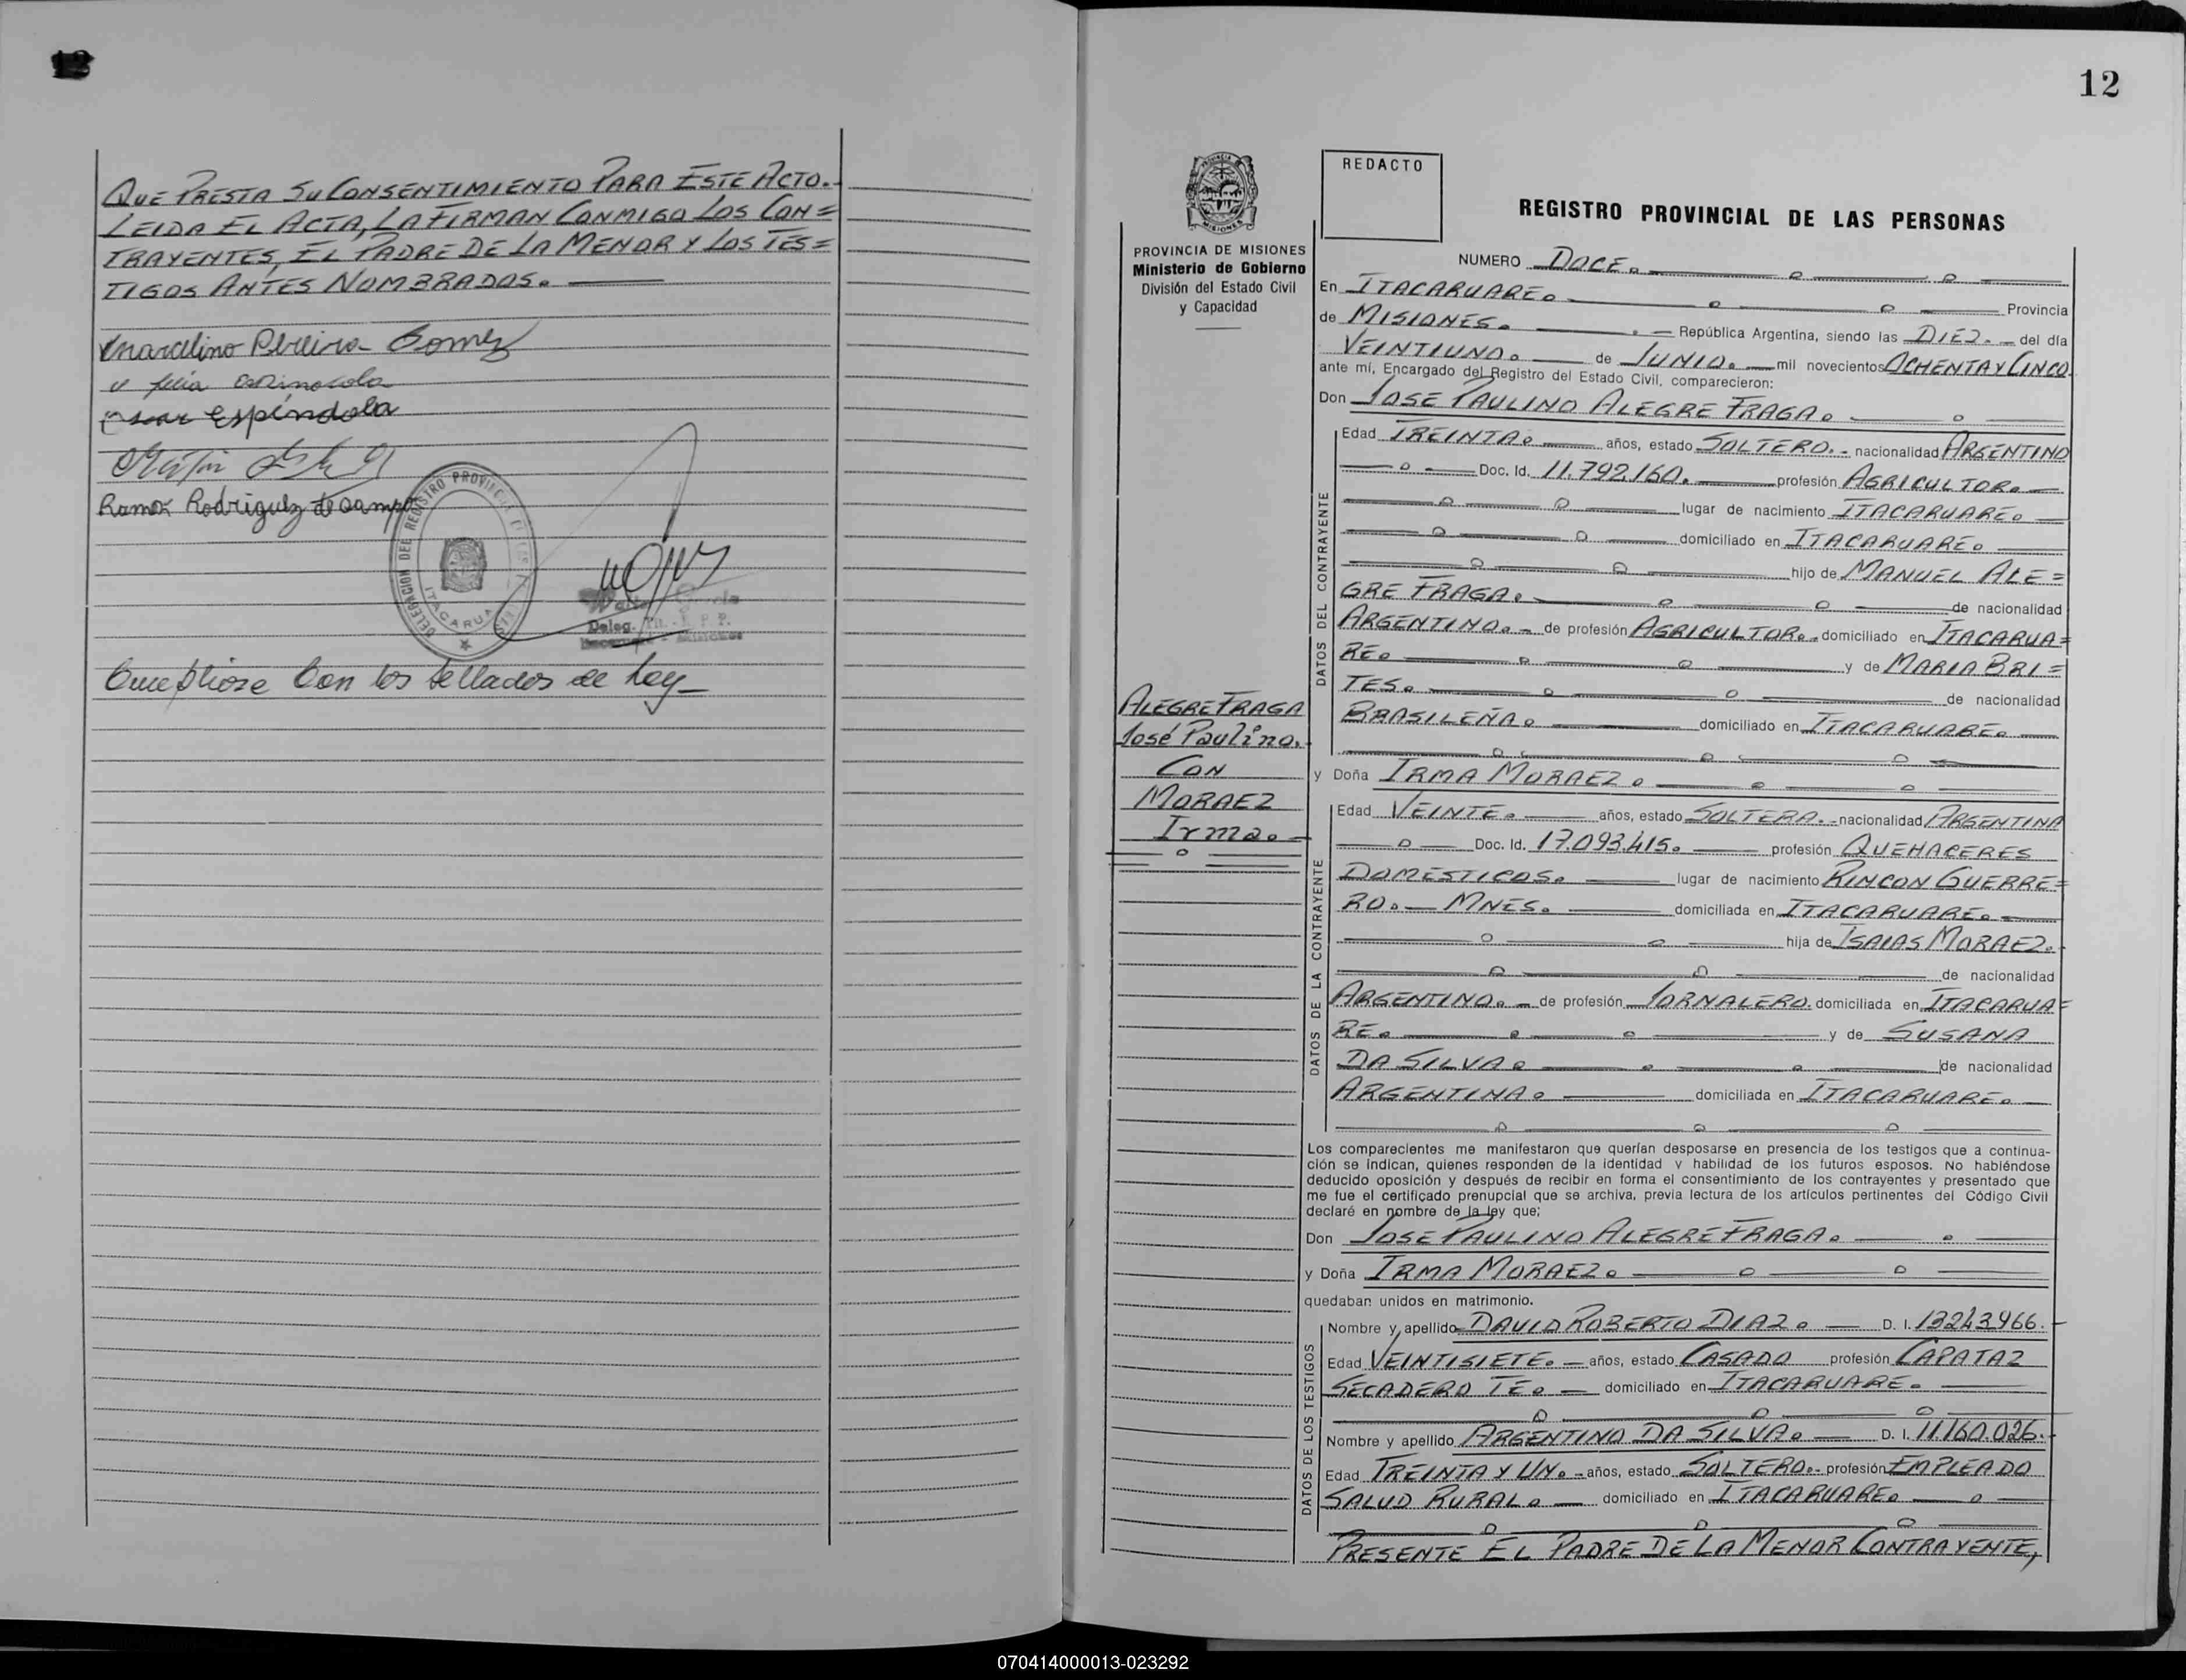 QUE PRESTA SU CONSENTIMIENTO PARA ESTE ACTO.
LEIDA EL ACTA, LA FIRMAN CONMIGO LOS CON=
TRAYENTES, EL PADRE DE LA MENOR Y LOS TES=
TIGOS ANTES NOMBRADOS.
Marcelino Pereira Gomez
espíndola
Ramon Rodriguez de
DELEGACION DEL REGISTRO PROVINCIAL DE LAS
ITACARUA
Deleg.
Cumpliose Con los Sellados de Ley
12
PROVINCIA DE MISIONES
Ministerio de Gobierno
División del Estado Civil
y Capacidad
ALEGRE FRAGA
José Paulino.
CON
MORAEZ
Irma.
REDACTO
REGISTRO PROVINCIAL DE LAS PERSONAS
NUMERO DOCE.
En ITACARUARE. Provincia
de MISIONES. República Argentina, siendo las DIEZ. del día
VEINTIUNO. de JUNIO. mil novecientos OCHENTA Y CINCO.
ante mí, Encargado del Registro del Estado Civil, comparecieron:
Don JOSE PAULINO ALEGRE FRAGA.
DATOS DEL CONTRAYENTE
Edad TREINTA. años, estado SOLTERO. nacionalidad ARGENTINO
Doc. Id. 11.792.160. profesión AGRICULTOR.
lugar de nacimiento ITACARUARE.
domiciliado en ITACARUARE.
hijo de MANUEL ALE=
GRE FRAGA. de nacionalidad
ARGENTINO. de profesión AGRICULTOR. domiciliado en ITACARUA=
RE. y de MARIA BRI=
TES. de nacionalidad
BRASILEÑA. domiciliado en ITACARUARE.
y Doña IRMA MORAEZ.
DATOS DE LA CONTRAYENTE
Edad VEINTE. años, estado SOLTERA. nacionalidad ARGENTINA
Doc. Id. 17.093.415. profesión QUEHACERES
DOMESTICOS. lugar de nacimiento RINCON GUERRE=
RO. MNES. domiciliada en ITACARUARE.
hija de ISAIAS MORAEZ.
de nacionalidad
ARGENTINO. de profesión JORNALERO. domiciliada en ITACARUA=
RE. y de SUSANA
DA SILVA. de nacionalidad
ARGENTINA. domiciliada en ITACARUARE.
Los comparecientes me manifestaron que querían desposarse en presencia de los testigos que a continua-
ción se indican, quienes responden de la identidad y habilidad de los futuros esposos. No habiéndose
deducido oposición y después de recibir en forma el consentimiento de los contrayentes y presentado que
me fue el certificado prenupcial que se archiva, previa lectura de los artículos pertinentes del Código Civil
declaré en nombre de la ley que;
Don JOSE PAULINO ALEGRE FRAGA.
y Doña IRMA MORAEZ.
quedaban unidos en matrimonio.
DATOS DE LOS TESTIGOS
Nombre y apellido DAVID ROBERTO DIAZ. D. I. 13243966.
Edad VEINTISIETE. años, estado CASADO profesión CAPATAZ
SECADERO TE. domiciliado en ITACARUARE.
Nombre y apellido ARGENTINO DA SILVA. D. I. 11160.026.
Edad TREINTA Y UN. años, estado SOLTERO. profesión EMPLEADO
SALUD RURAL. domiciliado en ITACARUARE.
PRESENTE EL PADRE DE LA MENOR CONTRAYENTE,
070414000013-023292